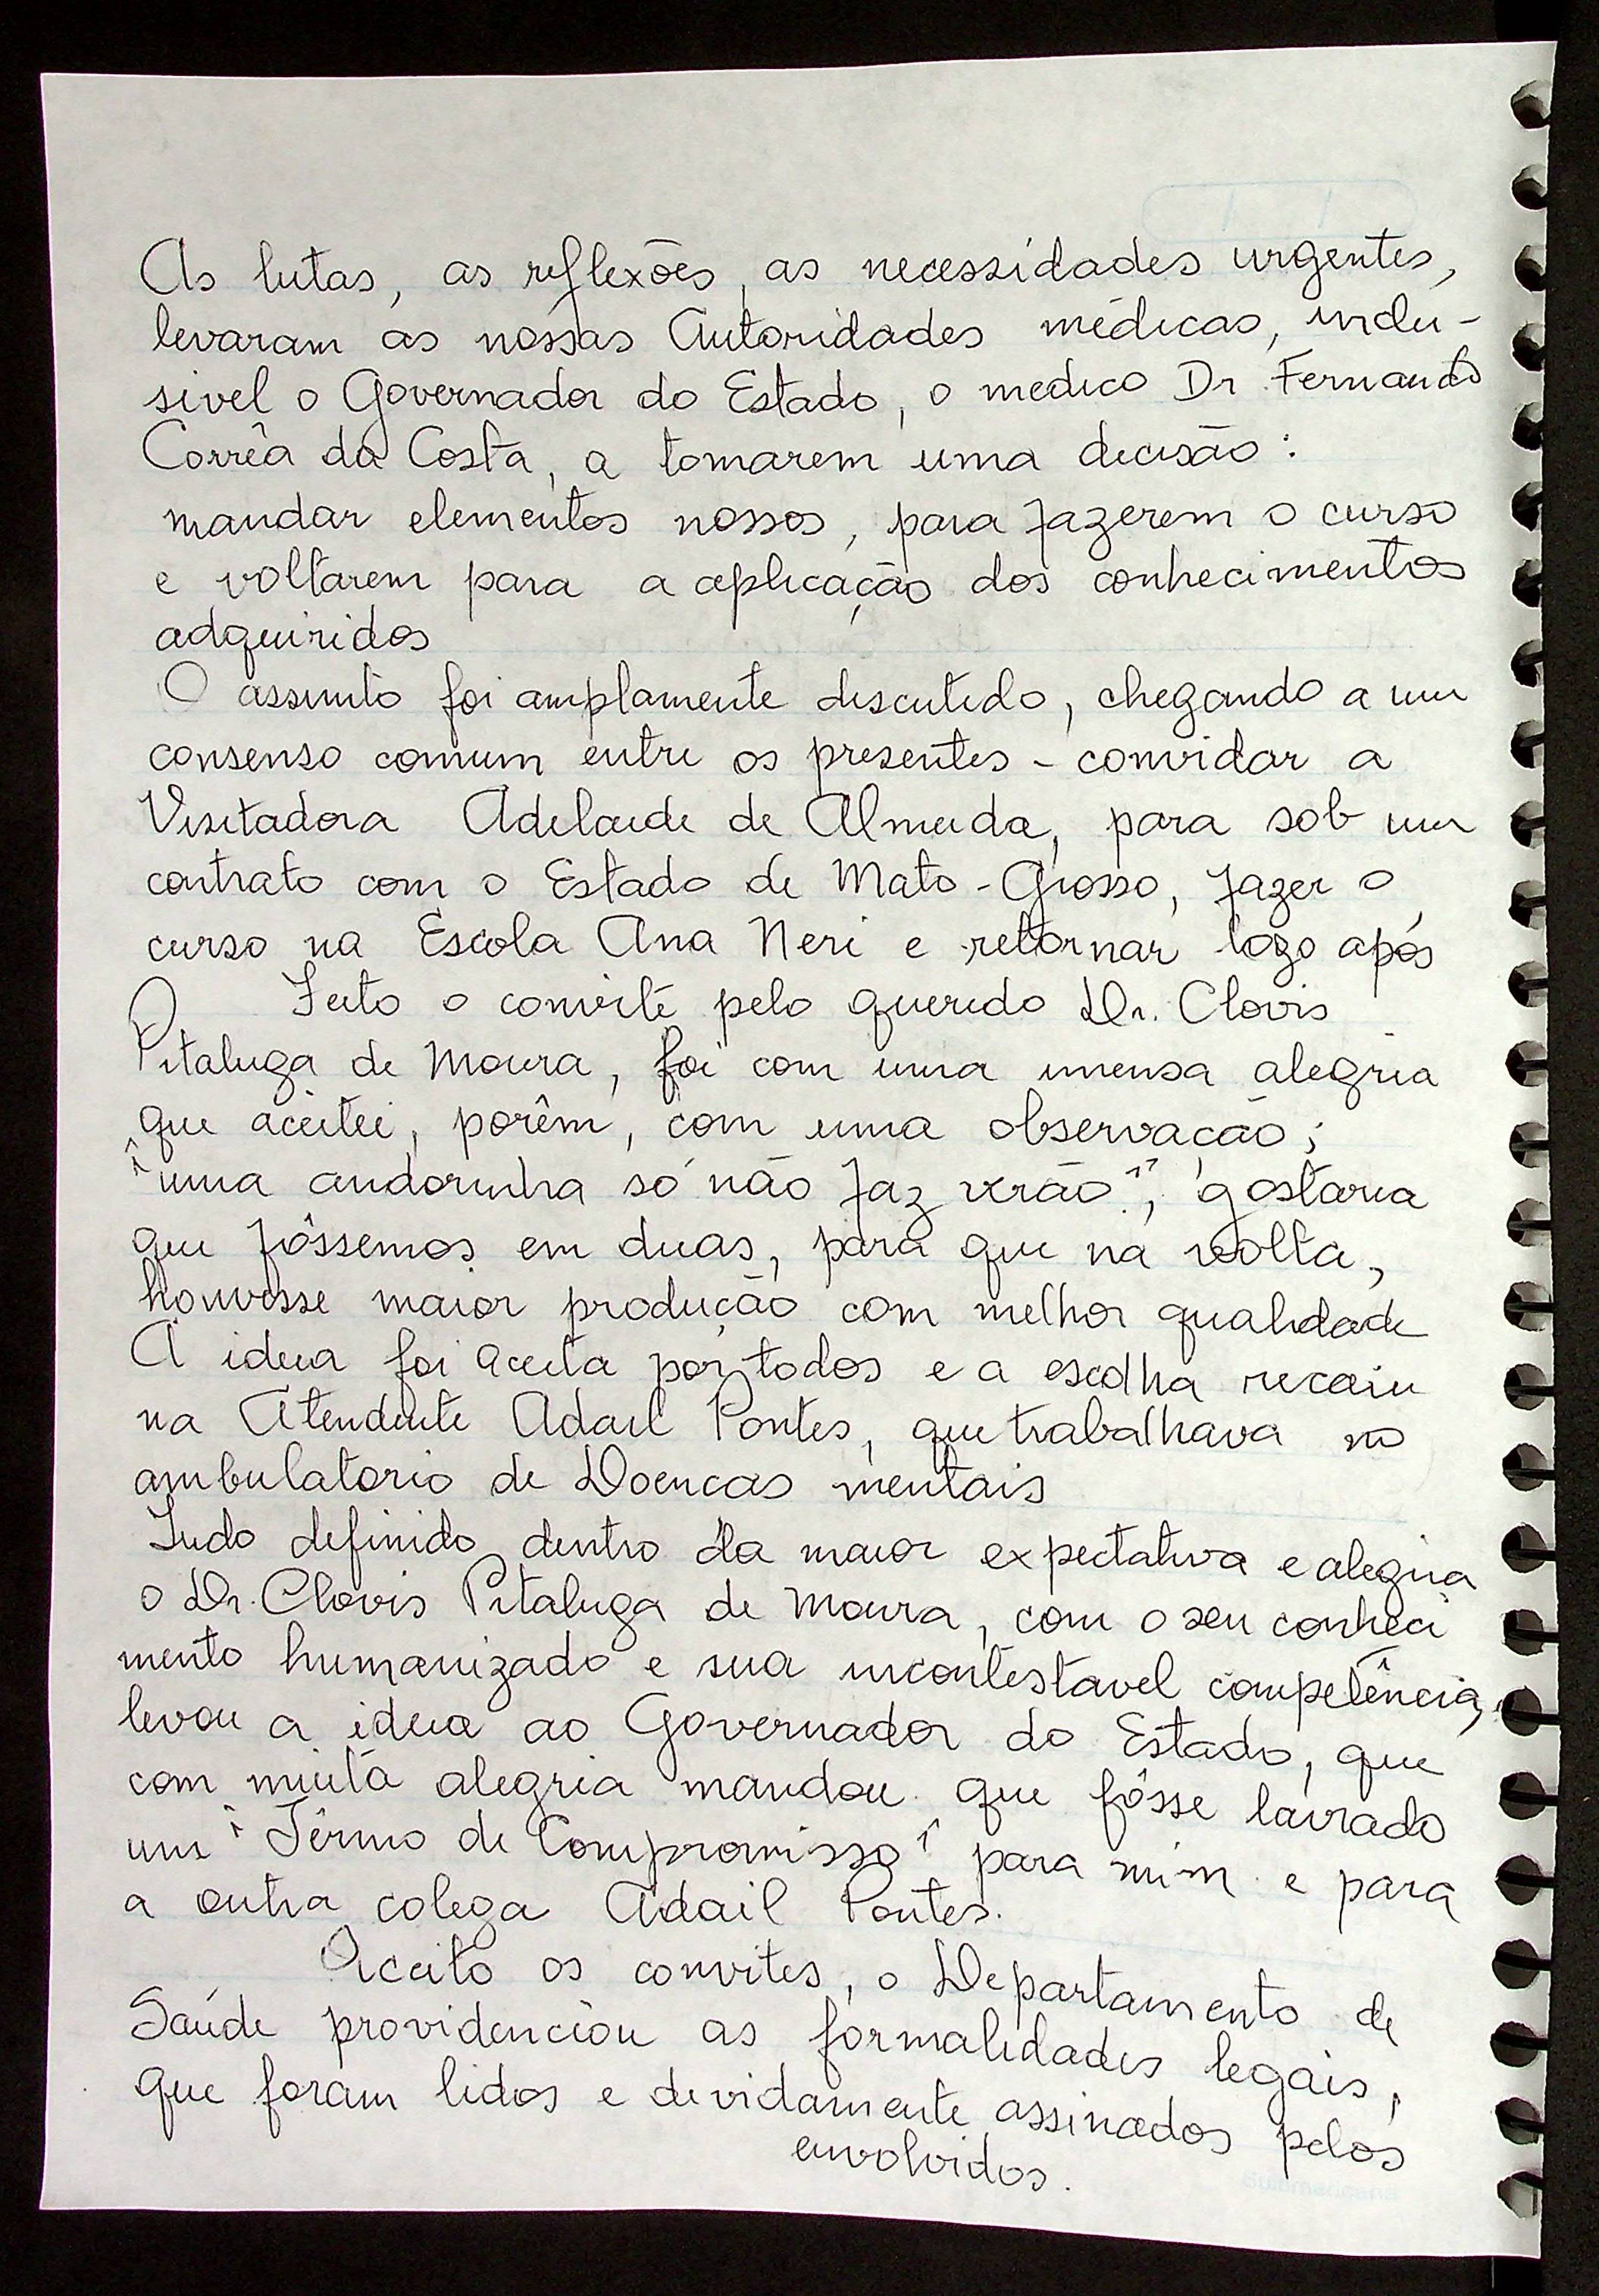 As lutas, as reflexões, as necessidades urgentes,
levaram as nossas Autoridades médicas, inclu-
sivel o Governador do Estado, o medico Dr Fernando
Corrêa da Costa, a tomarem uma decisão:
mandar elementos nossos, para fazerem o curso
e voltarem para a aplicação dos conhecimentos
adquiridos
O assunto foi amplamente discutido, chegando a um
consenso comum entre os presentes - convidar a
Visitadora Adelaide de Almeida, para sob um
contrato com o Estado de Mato-Grosso, fazer o
curso na Escola Ana Neri e retornar logo após
Feito o convite pelo querido Dr. Clovis
Pitaluga de Moura, foi com uma imensa alegria
que aceitei, porêm, com uma observação;
"uma andorinha só não faz verão", gostaria
que fôssemos em duas, para que na volta,
houvesse maior produção com melhor qualidade
A ideia foi aceita por todos e a escolha recaiu
na Atendente Adail Pontes, que trabalhava no
ambulatorio de Doencas mentais
Tudo definido dentro da maior expectativa e alegria
o Dr. Clovis Pitaluga de Moura, com o seu conheci
mento humanizado e sua incontestavel competência,
levou a ideia ao Governador do Estado, que
com muita alegria mandou que fôsse lavrado
um "Têrmo de Compromisso" para mim e para
a outra colega Adail Pontes.
Aceito os convites, o Departamento de
Saúde providenciou as formalidades legais,
que foram lidos e devidamente assinados pelos
envolvidos.